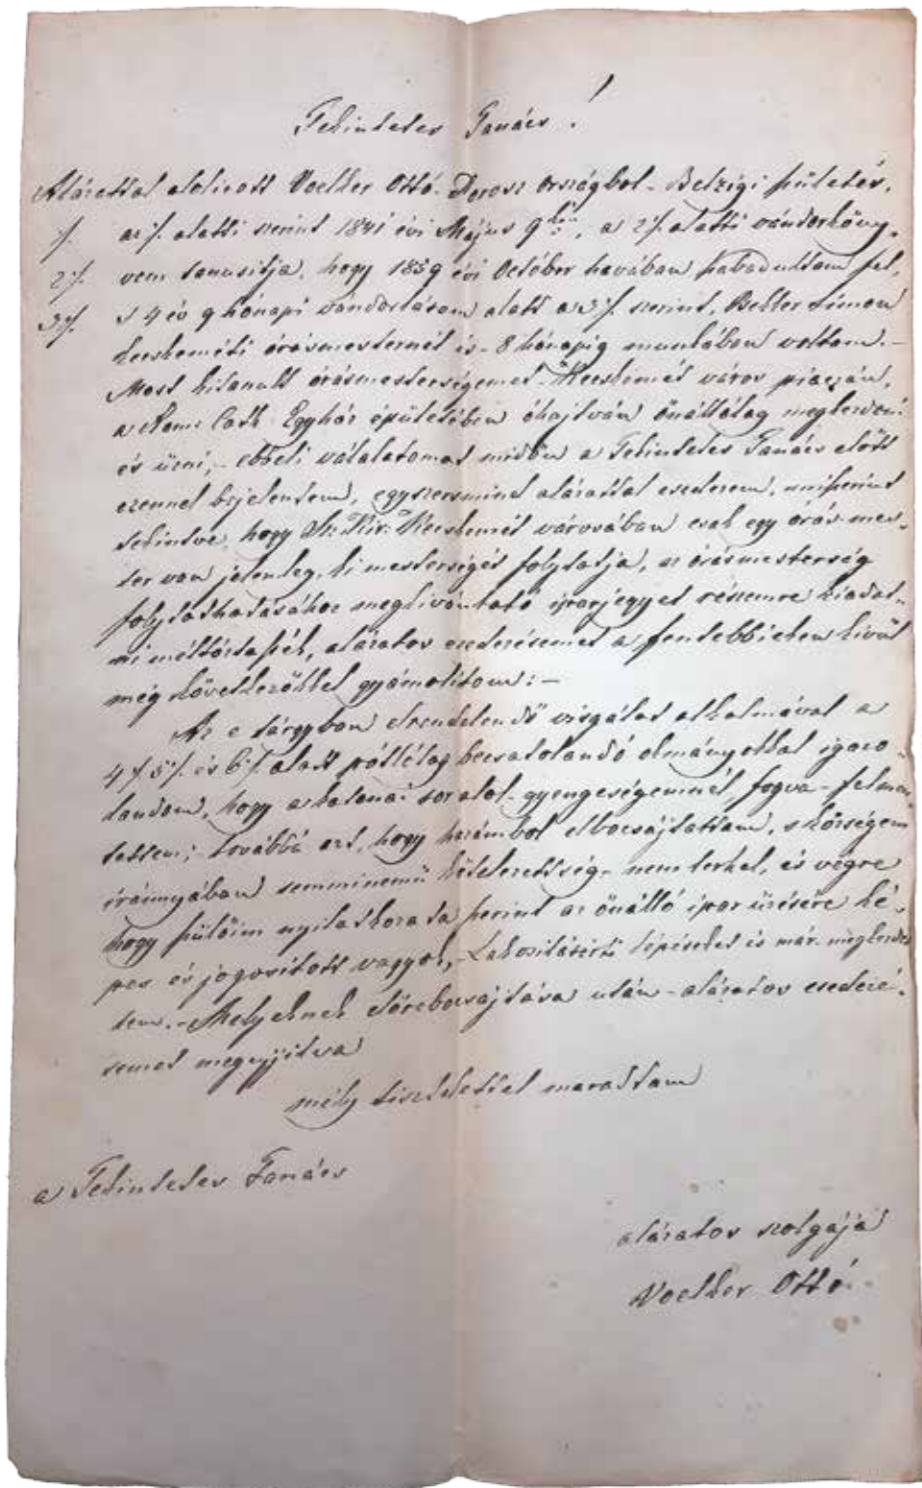 Tekintetes Tanács!
Alázattal alólirott Voelker Ottó Porosz országból – Belzigi születés,
1/. az 1/. alatti szerint 1841 évi Május 9kén, a 2/. alatti vándorköny-
2/. vem tanusitja, hogy 1859 évi October havában szabadultam fel,
3/. s 4 év 9 hónapi vándorlásom alatt a 3/. szerint, Bekker Simon
kecskeméti órásmesternél is – 8 hónapig munkában voltam. –
Most kitanult órásmesterségemet – Kecskemét város piaczán,
a Rom: Cath: Egyház épületében óhajtván önállólag megkezdeni
és üzni, – ebbeli vállalatomat midőn a Tekintetes Tanács előtt
ezennel bejelentem, egyszersmind alázattal esedezem, miszerint
tekintve, hogy Sz. Kir: Kecskemét városában csak egy órás mes-
ter van jelenleg, ki mesterségét folytatja, az órásmesterség
folytathatásához megkivántató iparjegyet részemre kiadat-
ni méltóztassék, alázatos esedezésemet a fentebbieken kivül
még következőkkel gyámolitom: –
Az e tárgyban elrendelendő vizsgálat alkalmával a
4/. 5/. és 6/. alatt pótlólag becsatolandó okmányokkal igazo-
landom, hogy a katonai sor alol – gyengeségemnél fogva – felmen-
tettem; továbbá azt, hogy hazámból elbocsájtattam, s községem
irányában semminemü kötelezettség – nem terhel, és végre
hogy szülőim nyilatkozata szerint az önálló ipar üzésére ké-
pes és jogositott vagyok, – Lakositásérti lépéseket is már megkezdet-
tem. – Melyeknek előrebocsájtása után – alázatos esedezé-
semet megujjitva
mély tisztelettel maradtam
a Tekintetes Tanács
alázatos szolgája
Voelker Ottó